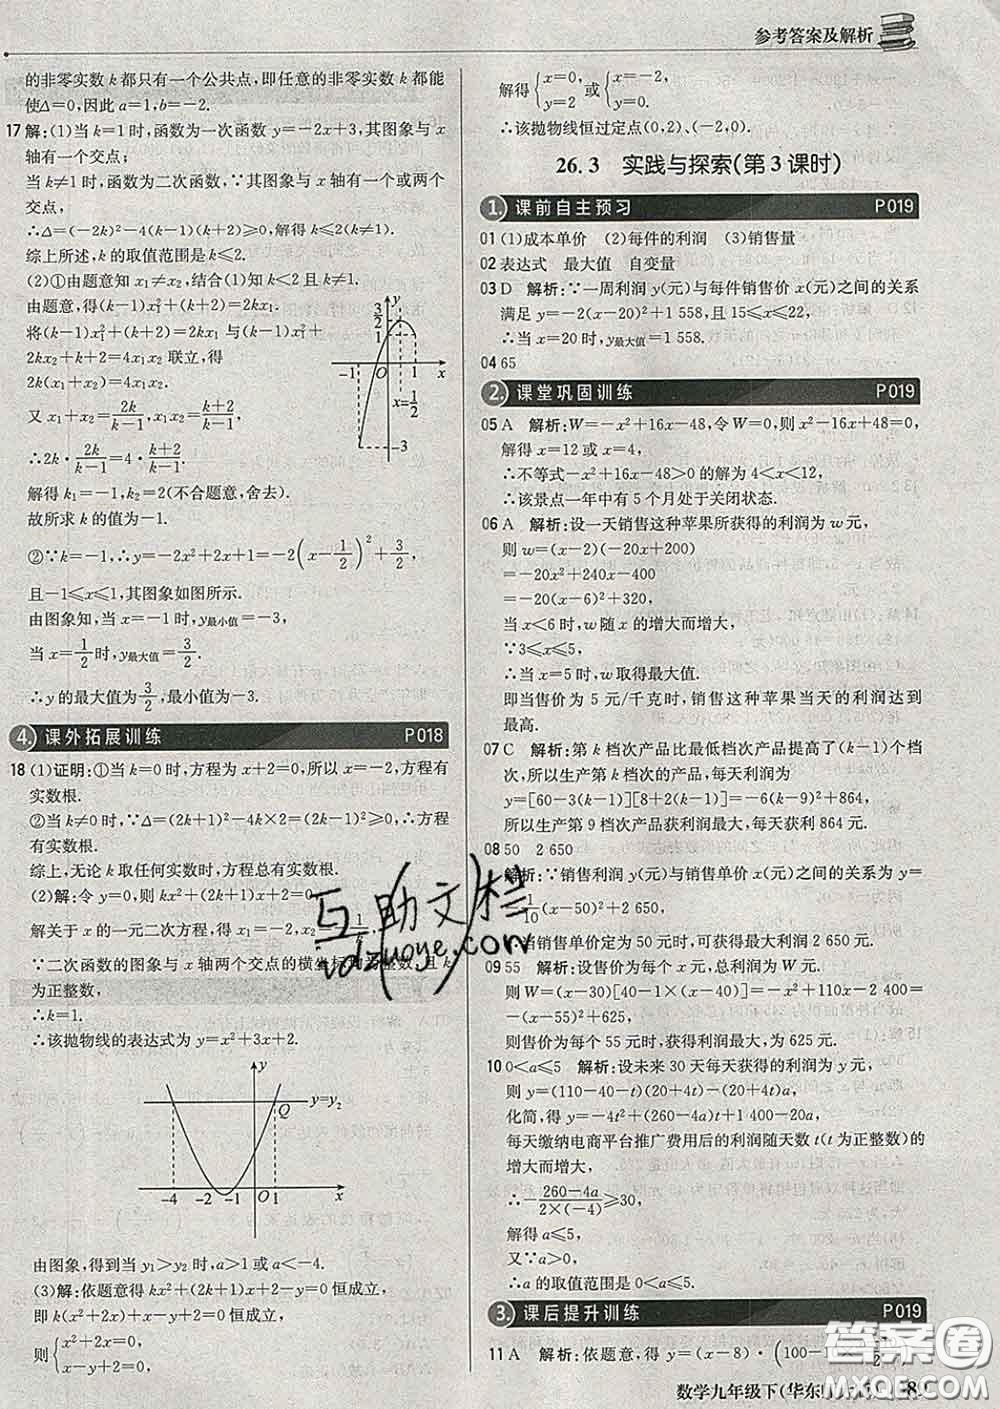 参考答案及解析
的非零实数 k 都只有一个公共点，即任意的非零实数 k 都能
使Δ=0，因此 a=1，b=-2.
17 解：(1)当 k=1时，函数为一次函数 y=-2x+3，其图象与 x
轴有一个交点；
当 k≠1 时，函数为二次函数，∵其图象与 x 轴有一个或两个
交点，
∴Δ=(-2k)²-4(k-1)(k+2)≥0，解得 k≤2(k≠1).
综上所述，k 的取值范围是 k≤2.
(2)①由题意知 x₁≠x₂，结合(1)知 k<2 且 k≠1.
由题意，得(k-1)x₁²+(k+2)=2kx₁.
将(k-1)x₁²+(k+2)=2kx₁ 与(k-1)x₁²+
2kx₂+k+2=4x₁x₂ 联立，得
2k(x₁+x₂)=4x₁x₂.
又 x₁+x₂=2k/(k-1)，x₁x₂=(k+2)/(k-1)，
∴2k·2k/(k-1)=4·(k+2)/(k-1).
解得 k₁=-1，k₂=2(不合题意，舍去).
故所求 k 的值为-1.
y
3/2
1
-1 O 1 x
x=1/2
-3
②∵k=-1，∴y=-2x²+2x+1=-2(x-1/2)²+3/2，
且-1≤x≤1，其图象如图所示.
由图象知，当 x=-1 时，y最小值=-3，
当 x=1/2时，y最大值=3/2.
∴y 的最大值为3/2，最小值为-3.
4. 课外拓展训练 P018
18 (1)证明：①当 k=0 时，方程为 x+2=0，所以 x=-2，方程有
实数根.
②当 k≠0 时，∵Δ=(2k+1)²-4k×2=(2k-1)²≥0，∴方程
有实数根.
综上，无论 k 取任何实数时，方程总有实数根.
(2)解：令 y=0，则 kx²+(2k+1)x+2=0，
解关于 x 的一元二次方程，得 x₁=-2，x₂=-1/k.
∵二次函数的图象与 x 轴两个交点的横坐标均为整数，且 k
为正整数，
∴k=1.
∴该抛物线的表达式为 y=x²+3x+2.
y
Q y=y₂
-4 -2 -1 O 1 x
由图象，得到当 y₁>y₂ 时，a>1 或 a<-4.
(3)解：依题意得 kx²+(2k+1)x+2-y=0 恒成立，
即 k(x²+2x)+x-y+2=0 恒成立，
则{x²+2x=0，
x-y+2=0.
解得{x=0， 或{x=-2，
y=2 y=0.
∴该抛物线恒过定点(0,2)、(-2,0).
26.3 实践与探索(第 3 课时)
1. 课前自主预习 P019
01 (1)成本单价 (2)每件的利润 (3)销售量
02 表达式 最大值 自变量
03 D 解析：∵一周利润 y(元)与每件销售价 x(元)之间的关系
满足 y=-2(x-20)²+1 558，且 15≤x≤22，
∴当 x=20 时，y最大值=1 558.
04 65
2. 课堂巩固训练 P019
05 A 解析：W=-x²+16x-48，令 W=0，则 x²-16x+48=0，
解得 x=12 或 x=4，
∴不等式-x²+16x-48>0 的解为 4<x<12，
∴该景点一年中有 5 个月处于关闭状态.
06 A 解析：设一天销售这种苹果所获得的利润为 w 元，
则 w=(x-2)(-20x+200)
=-20x²+240x-400
=-20(x-6)²+320，
当 x<6 时，w 随 x 的增大而增大，
∵3≤x≤5，
∴当 x=5 时，w 取得最大值.
即当售价为 5 元/千克时，销售这种苹果当天的利润达到
最高.
07 C 解析：第 k 档次产品比最低档次产品提高了(k-1)个档
次，所以生产第 k 档次的产品，每天利润为
y=[60-3(k-1)][8+2(k-1)]=-6(k-9)²+864，
所以生产第 9 档次产品获利润最大，每天获利 864 元.
08 50 2 650
解析：∵销售利润 y(元)与销售单价 x(元)之间的关系为 y=
-1/10(x-50)²+2 650，
∴当销售单价定为 50 元时，获得最大利润 2 650 元.
09 55 解析：设售价为每个 x 元，总利润为 W 元.
则 W=(x-30)[40-1×(x-40)]=-x²+110x-2 400=
-(x-55)²+625，
则售价为每个 55 元时，获得最大利润，最大为 625 元.
10 0<a≤5 解析：设未来 30 天每天获得的利润为 y 元，
则 y=(110-40-t)(20+4t)-(20+4t)a，
化简，得 y=-4t²+(260-4a)t+1 400-20a，
每天缴纳电商平台推广费用后的利润随天数 t(t 为正整数)的
增大而增大，
∴-(260-4a)/(2×(-4))≥30，
解得 a≤5，
又∵a>0，
∴a 的取值范围是 0<a≤5.
3. 课后提升训练 P019
11 A 解析：依题意，得 y=(x-8)·(100-
数学九年级下(华东
互助文档
vdzuoye.com
答案圈